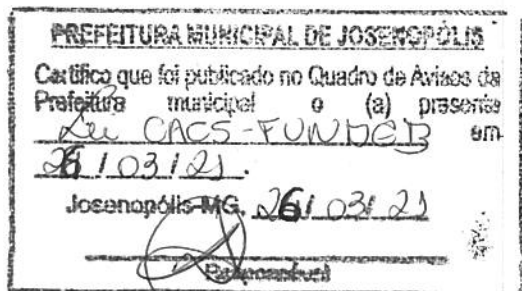 PREFEITURA MUNICIPAL DE JOSENOPÓLIS
Certifico que foi publicado no Quadro de Avisos da
Prefeitura municipal o (a) presente
Lei CACS-FUNDEB em
26/03/21.
Josenopólis-MG, 26/03/21
Responsável